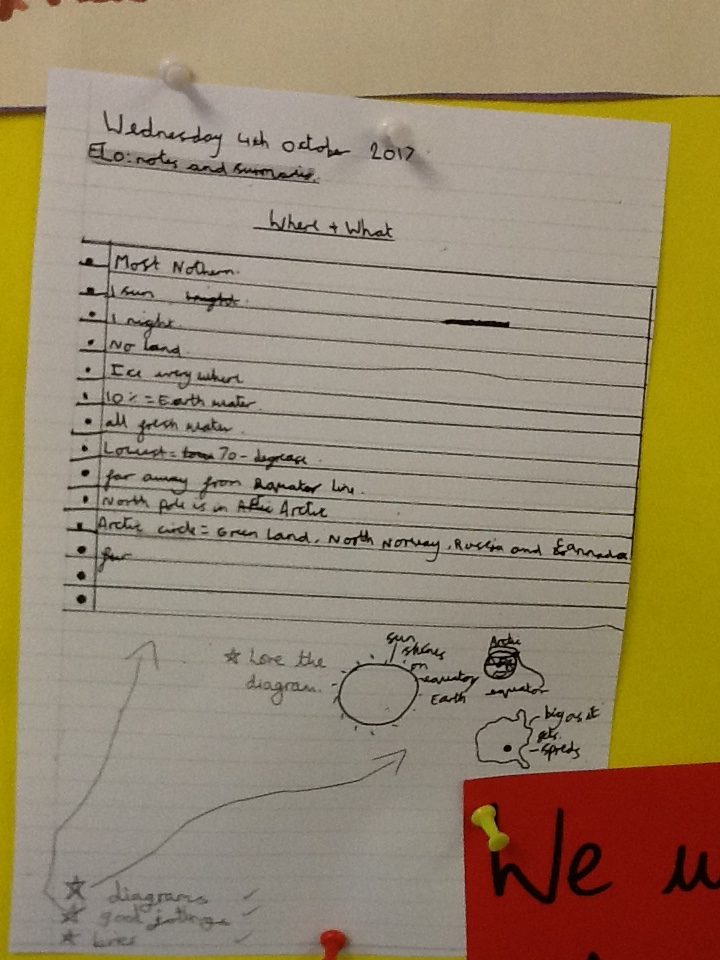 Wednesday 4th October 2017
ELO: notes and summaris.
Where + What
• Most Nothern.
• 1 sun bright.
• 1 night.
• No land.
• Ice every where
• 10% = Earth water.
• all fresh water.
• Lowest = 70 - degrease.
• far away from Equator line.
• North Pole is in Arctic
• Arctic circle = Green Land, North Norway, Russia and Cannada
• far
☆ Love the
diagram.
sun
shines
on
equator
Earth
Arctic
equator
big as it
gets.
spreds
☆ diagrams ✓
☆ good jottings ✓
☆ lines ✓
We